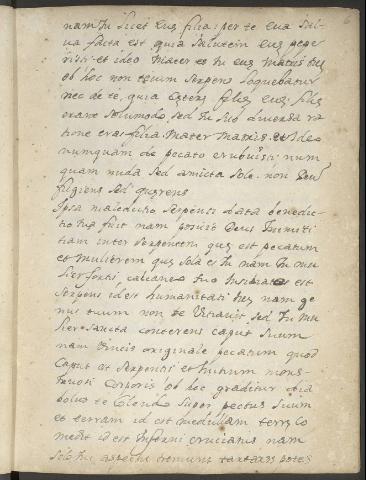 nam tu licet Eus filia: per te Eua sal-
ua facta est, quia salutem Eus pepe
risti et ideo Mater es tu eus matris tus
ob hoc non tecum serpens loquebatur
nec de te, quia Eus filii
erant solummodo, sed tu sub diuersa ra
tione eras filia. Mater matris. et Ideo
numquam de pecato erubuisti: num
quam nuda sed amicta sole. non Deum
fugiens sed querens
Ipsa maledictio serpenti data benedic-
tio tua fuit nam posuit Deus Inimici
tiam inter serpentem qui est pecatum
et mulierem que sola es tu nam tu mu
lier forti calcaneo tuo est
serpens id est humanitati tus nam ge
nus tuum non te sed tu mu
lier sancta conterens caput suum
nam originale pecatum quod
caput at serpentis et totum mons-
truosi corporis ob hoc graditur dia
bolus te super pectus suum
et terram id est medullam terrs co
medit id est Inferni cruciatus nam
solo tuo aspectu tremunt tartarei